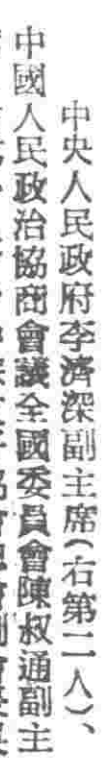 中央人民政府李濟深副主席(右第二人)、
中國人民政治協商會議全國委員會陳叔通副主